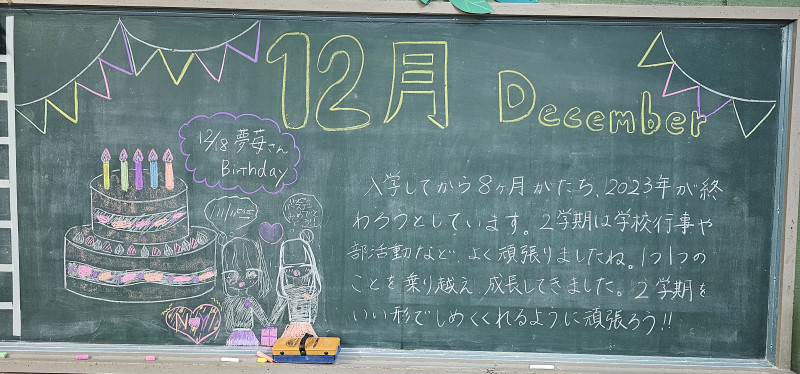 12月
December
12/18 夢苺さん
Birthday
入学してから8ヶ月がたち、2023年が終
わろうとしています。2学期は学校行事や
部活動など、よく頑張りましたね。1つ1つの
ことを乗り越え 成長してきました。2学期を
いい形でしめくくれるように頑張ろう!!